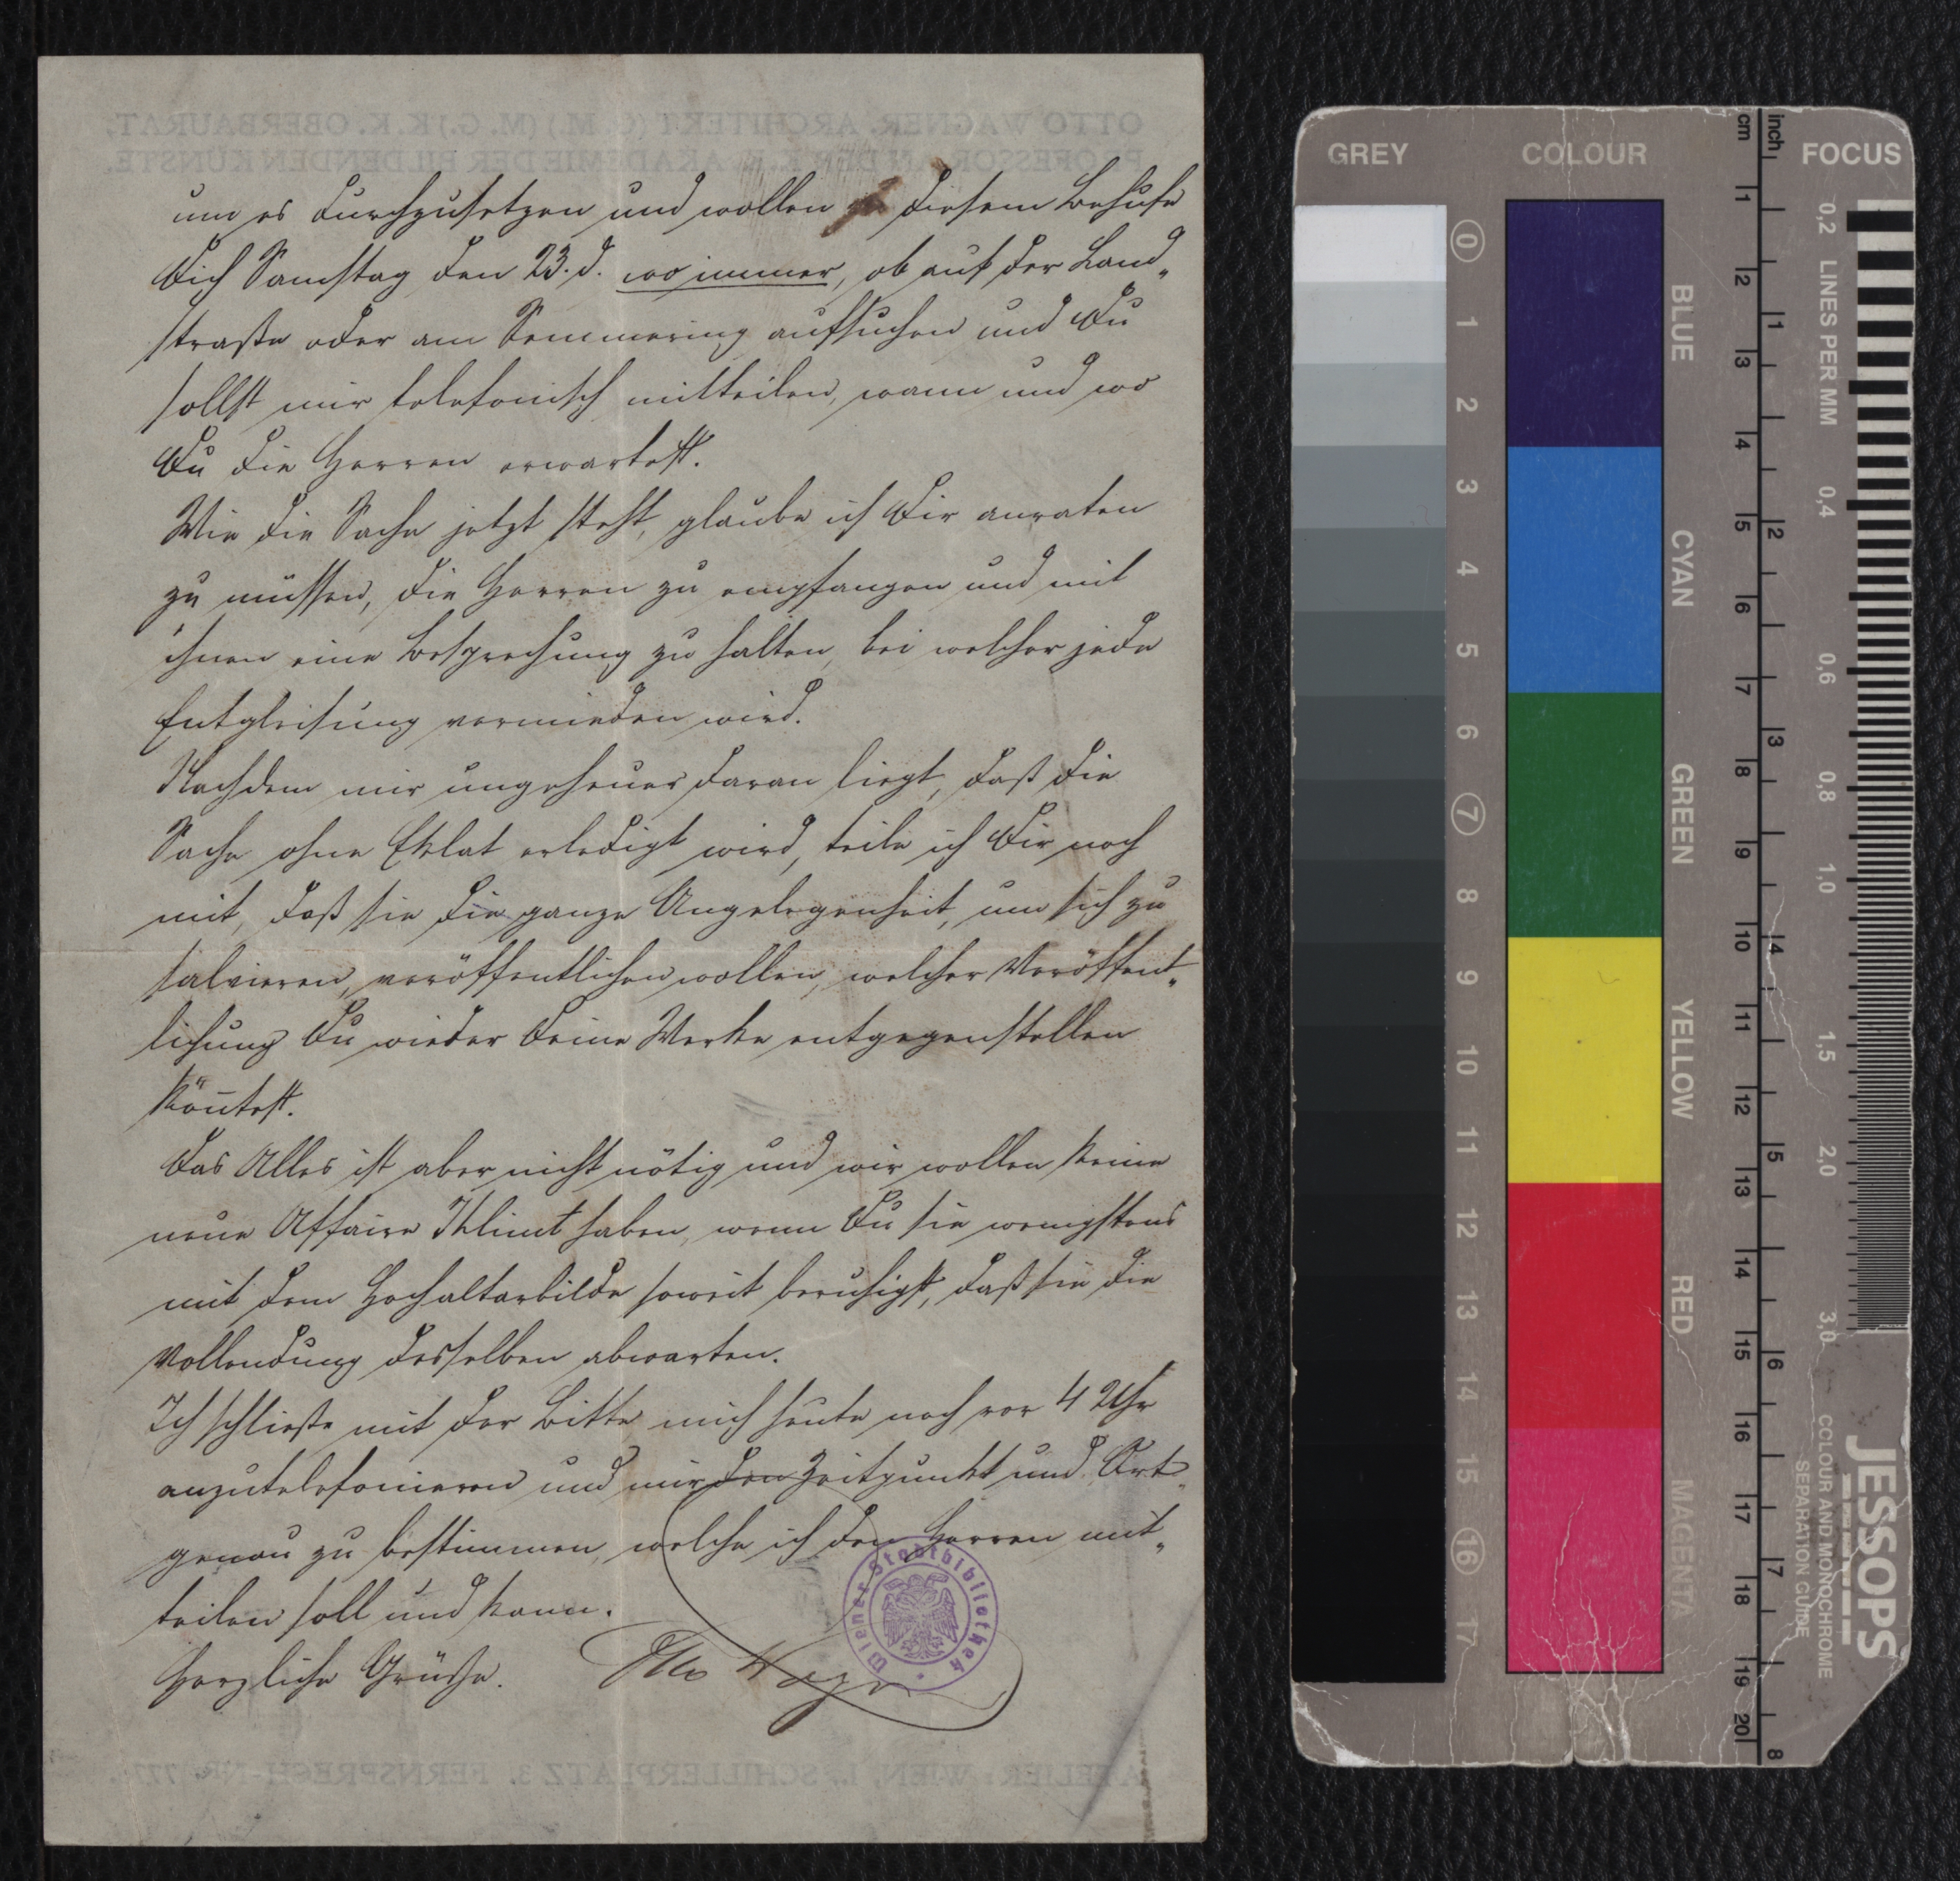 um es durchzusetzen und wollen zu diesem Behufe
Dich Samstag den 23. d. wo immer, ob auf der Land„
straße oder am Semmering aufsuchen und Du
sollst mir telefonisch mitteilen, wann und wo
Du die Herren erwartest.
Wie die Sache jetzt steht, glaube ich Dir anraten
zu müssen, die Herren zu empfangen und mit
ihnen eine Besprechung zu halten, bei welcher jede
Entgleisung vermieden wird.
Nachdem mir ungeheuer daran liegt, daß die
Sache ohne Eklat erledigt wird, teile ich Dir noch
mit, daß sie die ganze Angelegenheit, um sich zu
salvieren, veröffentlichen wollen, welcher Veröffent„
lichung Du wieder Deine Werke entgegenstellen
kön̄test.
Das Alles ist aber nicht nötig und wir wollen keine
neue Affaire Klimt haben, wenn Du sie wenigstens
mit dem Hochaltarbilde soweit beruhigst, daß sie die
Vollendung desselben abwarten.
Ich schließe mit der Bitte mich heute noch vor 4 Uhr
anzutelefonieren und mir den Zeitpunkt und Ort
genau zu bestimmen, welche ich den Herren mit„
teilen soll und kann.
Herzliche Grüße. Otto Wagner
Wiener Stadtbibliothek
OTTO WAGNER, ARCHITEKT K. K. OBERBAURAT,
PROFESSOR AN DER K. K. AKADEMIE DER BILDENDEN KÜNSTE.
ATELIER: WIEN, I., SCHILLERPLATZ 3. FERNSPRECH-NR.
GREY COLOUR FOCUS
cm inch
0 1 2 3 4 5 6 7 8 9 10 11 12 13 14 15 16 17
BLUE
CYAN
GREEN
YELLOW
RED
MAGENTA
1 2 3 4 5 6 7 8 9 10 11 12 13 14 15 16 17 18 19 20
1 2 3 4 5 6 7 8
0,2 LINES PER MM 0,4 0,6 0,8 1,0 1,5 2,0 3,0
JESSOPS
COLOUR AND MONOCHROME
SEPARATION GUIDE